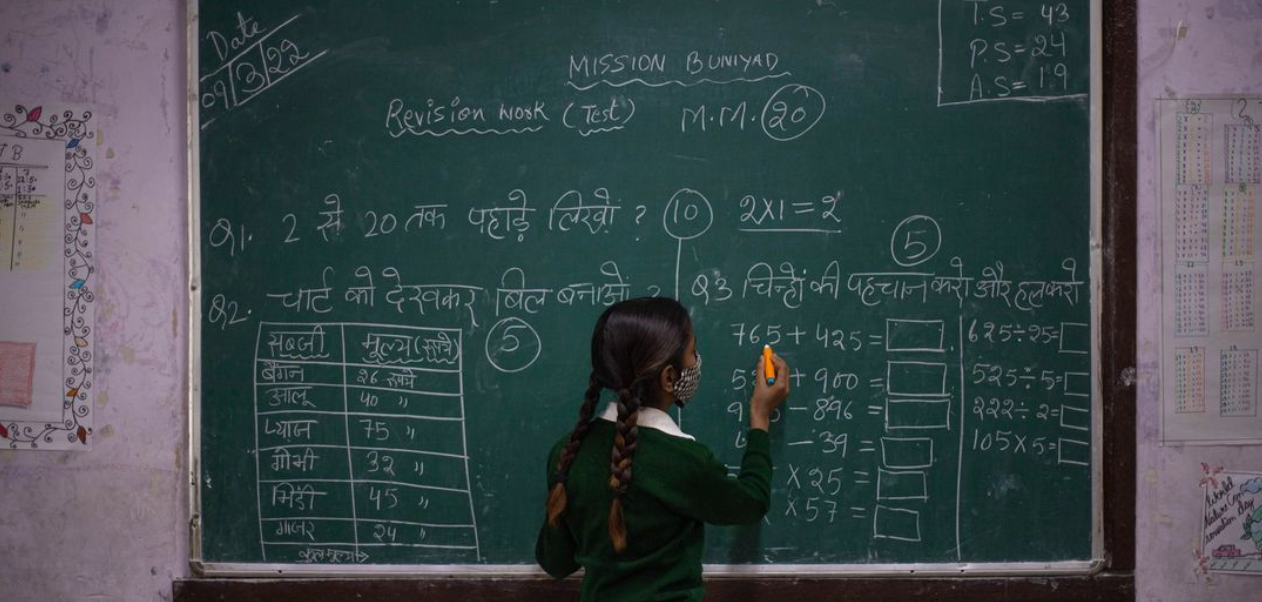 Date
09/3/22
T.S = 43
P.S = 24
A.S = 19
MISSION BUNIYAD
Revision work (Test) M.M. 20
Q1. 2 से 20 तक पहाड़े लिखो ? 10 2X1=2
Q2. चार्ट को देखकर बिल बनाओ ? 5
सब्जी मूल्य (रुपये)
बैंगन 26 रुपये
आलू 40 "
प्याज 75 "
गोभी 32 "
भिंडी 45 "
गाजर 24 "
कुल मूल्य→
5
Q3 चिन्हों की पहचान करो और हल करो
765 + 425 =
+ 900 =
- 896 =
- 39 =
X 25 =
X 57 =
625÷25=
525÷5=
222÷2=
105X5=
World
Nature Con
servation day